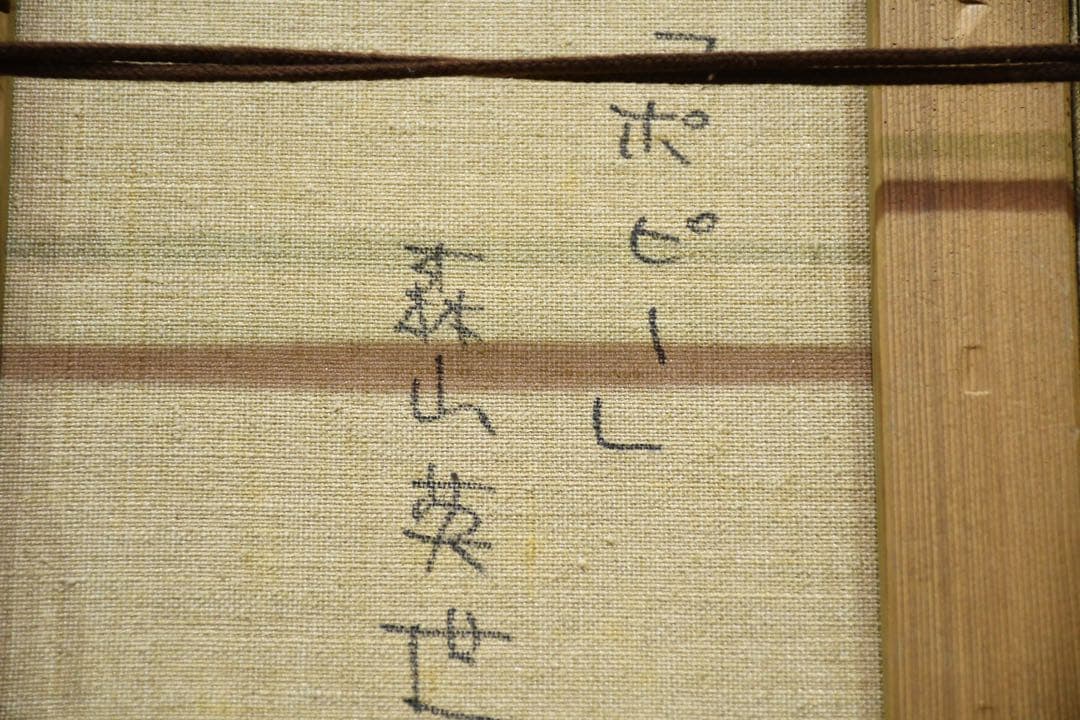 「ポピー」
森山英世